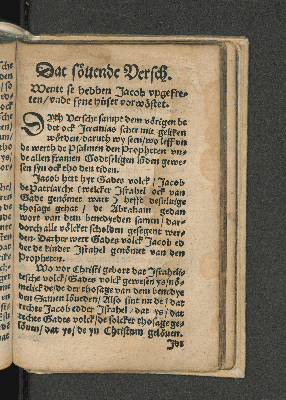 Dat söuende Versch.
Wente se hebben Jacob vpgefre-
ten/vnde syne hüser vorwöstet.
Dyth Versche sampt dem vörigen he
bet ock Jeremias schier mit geliken
wörden/daruth wy seen/wo leff vn
de werth de Psalmen den Propheten vn
de allen framen Godtseligen lüden gewe-
sen syn ock tho den tiden.
Jacob hett hyr Gades volck/Jacob
de Patriarche (welcker Israhel ock van
Gade genömet wart) hefft desüluige
thosage gehat/de Abraham gedan
wort van dem benedyeden samen/dar-
dorch alle völcker scholden gesegent wer-
den. Darher wert Gades volck Jacob ed
der de kinder Israhel genömet van den
Propheten.
Wo vor Christi gebort dat Israheli-
tesche volck/Gades volck gewesen ys/nö-
melick de/de der thosage van dem benedye
den Samen löueden/Also sint nu de/dat
rechte Jacob edder Israhel/dat ys/dat
rechte Gades volck/de solcker thosage ge-
löuen/dat ys/de yn Christum gelöuen.